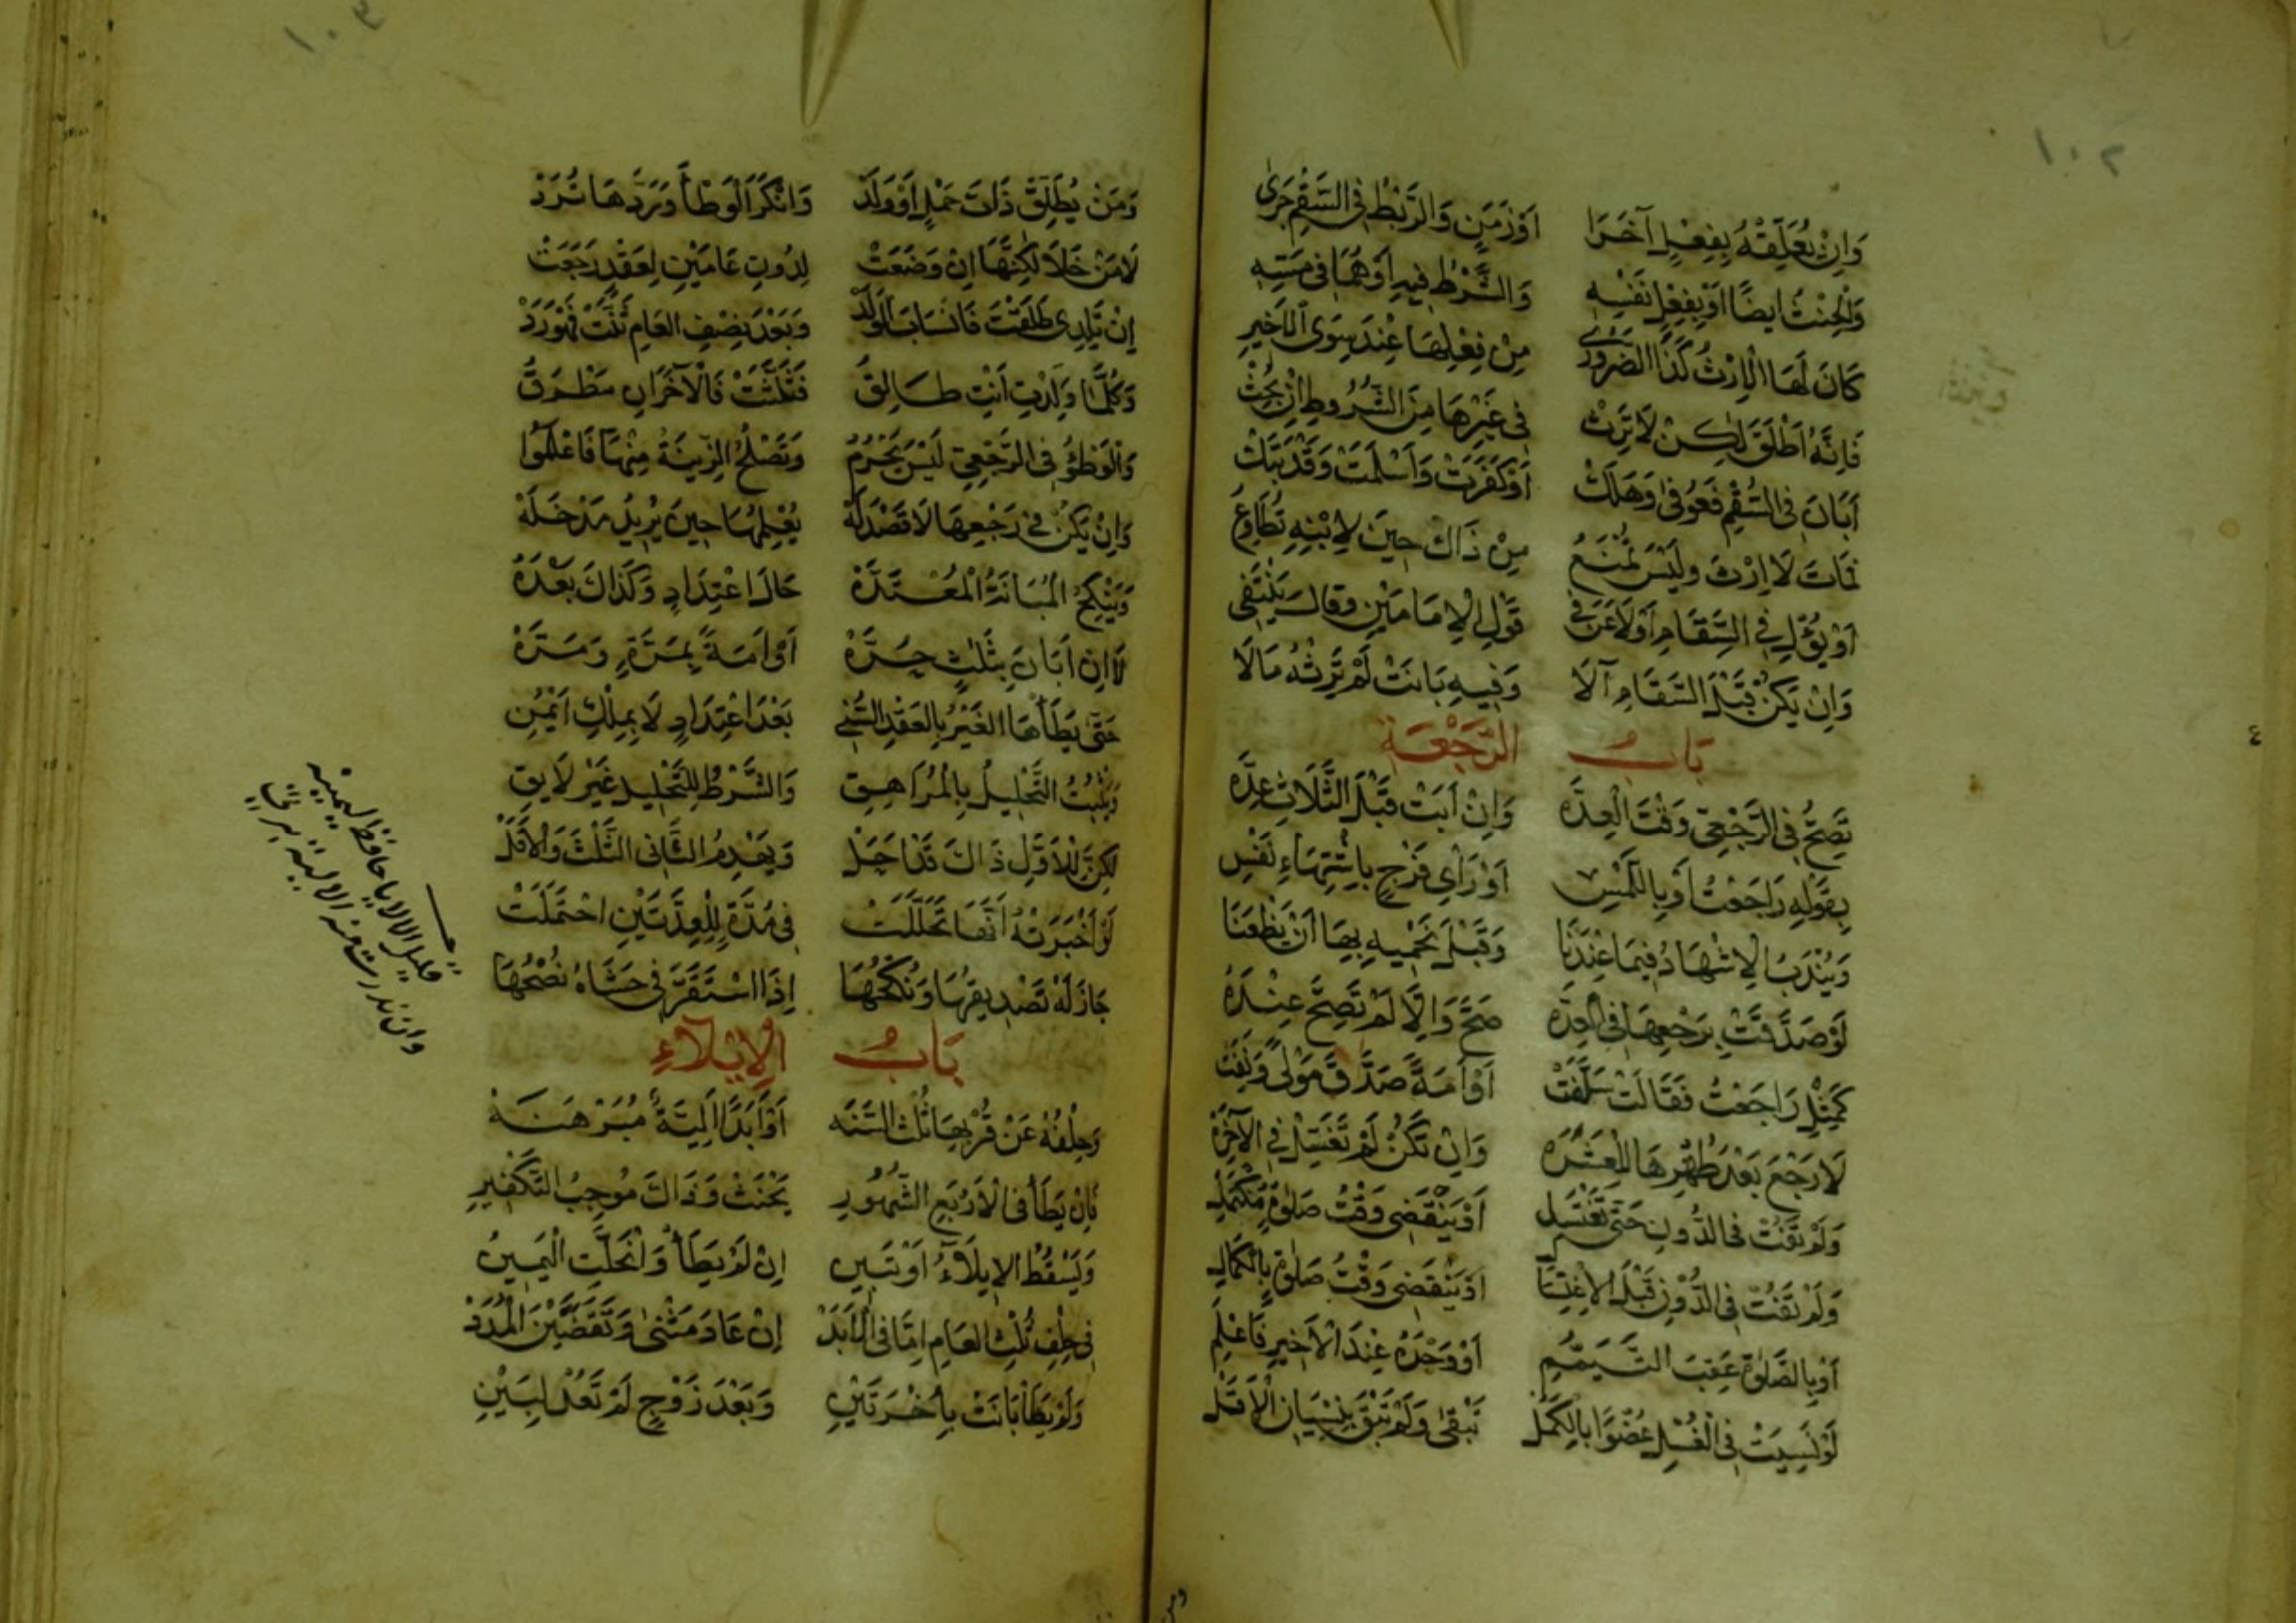 ١٠٢
وَاِنْ يُعَلِّقْهُ بِفِعْلِ آخَرَا اَوْ زَمَنٍ وَالرَّبْطُ فِى السَّقْمِ جَرٰى
وَالْحِنْثُ ايضًا اَوْ بِفِعْلِ نَفْسِهِ وَالشَّرْطُ فِيهِ اَوْ هُمَا فِى مَسِّهِ
كَانَ لَهَا الْاِرْثُ كَذَا الضَّرُورِى مِنْ فِعْلِهَا عِنْدَ سِوَى الْاَخِيرِ
فَاِنَّهُ اَطْلَقَ لٰكِنْ لَا تَرِثْ فِى غَيْرِهَا مِنَ الشُّرُوطِ اِنْ بُحِثْ
اَبَانَ فِى السُّقْمِ فَعُوفِىْ وَهَلَكْ اَوْ كَفَرَتْ وَاَسْلَمَتْ وَقَدْ بَتَكْ
فَمَاتَ لَا اِرْثَ وَلَيْسَ تُمْنَعُ مِنْ ذَاكَ حِينَ لِابْنِهِ تُطَاوِعُ
اَوْ يُؤْلِ فِى السَّقَامِ اَوْ لَاعَنَ فِى قَوْلِ الْاِمَامَيْنِ وَقَالَ يَنْتَفِى
وَاِنْ يَكُنْ قَبْلَ السَّقَامِ آلَا وَفِيهِ بَانَتْ لَمْ تَرِثْهُ مَالَا
بَابُ الرَّجْعَةِ
تَصِحُّ فِى الرَّجْعِىِّ وَقْتَ الْعِدَّه وَاِنْ اَبَتْ قَبْلَ الثَّلَاثِ عِدَّه
بِقَوْلِهِ رَاجَعْتُ اَوْ بِاللَّمْسِ اَوْ رَأْىِ فَرْجٍ بِاشْتِهَاءِ نَفْسِ
وَيُنْدَبُ الْاِشْهَادُ فِيمَا عِنْدَنَا وَقَبْلَ نَحْمِيهِ بِهَا اَنْ يَظْعَنَا
لَوْ صَدَّقَتْ بِرَجْعِهَا فِى الْعِدَّهْ صَحَّ وَاِلَّا لَمْ تَصِحَّ عِنْدَهُ
كَمِثْلِ رَاجَعْتُ فَقَالَتْ سَلَّفَتْ اَوْ اَمَةً صَدَّقَ مَوْلًى وَنَفَتْ
لَا رَجْعَ بَعْدَ طُهْرِهَا لِلْعَشَرَهْ وَاِنْ تَكُنْ لَمْ تَغْتَسِلْ فِى الْآخِرَهْ
وَلَمْ تَفُتْ فِى الدُّونِ حَتّٰى تَغْتَسِلْ اَوْ يَنْقَضِى وَقْتُ صَلٰوةٍ مُكْتَمِلْ
وَلَمْ تَفُتْ فِى الدُّوْنِ قَبْلَ الْاِغْتِسَالِ اَوْ يَنْقَضِى وَقْتُ صَلٰوةٍ بِالْكَمَالِ
اَوْ بِالصَّلٰوةِ عَقِبَ التَّيَمُّمِ اَوْ وَحْدَهُ عِنْدَ الْاَخِيرِ فَاعْلَمِ
لَوْ نَسِيَتْ فِى الْغُسْلِ عُضْوًا بِالْكَمَلْ تَبْقٰى وَلَمْ تَبْقَ بِنِسْيَانِ الْاَقَلْ
١٠٣
وَمَنْ يُطَلِّقْ ذَاتَ حَمْلٍ اَوْ وَلَدْ وَانْكَرَ الْوَطْأَ وَرَدَّهَا تُرَدْ
لَا مَنْ خَلَا لٰكِنَّهَا اِنْ وَضَعَتْ لِدُونِ عَامَيْنِ لِعَقْدٍ رَجَعَتْ
اِنْ تَلِدِى طَلَقْتِ فَانْسَابَ الْوَلَدْ وَبَعْدَ نِصْفِ الْعَامِ ثَنَّتْ فَهْوَ رَدْ
وَكُلَّمَا وَلَدْتِ اَنْتِ طَالِقُ فَثَلَّثَتْ فَالْآخَرَانِ مَطْرَقُ
وَالْوَطْؤُ فِى الرَّجْعِىِّ لَيْسَ يَحْرُمُ وَتَصْلُحُ الزِّينَةُ مِنْهَا فَاعْلَمُوا
وَاِنْ يَكُنْ فِى رَجْعِهَا لَا قَصْدَ لَهْ يُعْلِمُهَا حِينَ يُرِيدُ مَدْخَلَهْ
وَيَنْكِحُ الْمُبَانَةَ الْمُعْتَدَّهْ حَالَ اعْتِدَادٍ وَكَذَاكَ بَعْدَهُ
لَا اِنْ اَبَانَ بِثَلٰثٍ حُرَّهْ اَوْ اَمَةً بِمَرَّةٍ وَمَرَّهْ
حَتّٰى يَطَأْهَا الْغَيْرُ بِالْعَقْدِ السَّنِى بَعْدَ اعْتِدَادٍ لَا بِمِلْكِ اَيْمُنِ
وَيَثْبُتُ التَّحْلِيلُ بِالْمُرَاهِقِ وَالشَّرْطُ لِلتَّحْلِيلِ غَيْرُ لَايِقِ
لٰكِنْ لِلْاَوَّلِ ذَاكَ قَدْ احَلْ وَيَهْدِمُ الثَّانِى الثَّلٰثَ وَالْاَقَلْ
لَوْ اَخْبَرَتْهُ اَنَّهَا تَحَلَّلَتْ فِى مُدَّةٍ لِلْعِدَّتَيْنِ احْتَمَلَتْ
جَازَ لَهُ تَصْدِيقُهَا وَنُكْحُهَا اِذَا اسْتَقَرَّ فِى حَشَاهُ نُصْحُهَا
بَابُ الْاِيلَآءِ
وَحِلْفُهُ عَنْ قُرْبِهَا ثُلْثَ السَّنَه اَوْ اَبَدًا اَلِيَّةٌ مُبَرْهَنَهْ
فَاِنْ يَطَأْ فِى الْاَرْبَعِ الشُّهُورِ يَحْنَثْ وَذَاكَ مُوجِبُ التَّكْفِيرِ
وَيَسْقُطُ الْاِيلَآءُ اَوْ تَبِينُ اِنْ لَمْ يَطَأْ وَانْحَلَّتِ الْيَمِينُ
فِى حِلْفِ ثُلْثِ الْعَامِ اِمَّا فِى الْاَبَدْ اِنْ عَادَ مَثْنٰى وَتَقَضَّيْنَ الْمُدَدْ
وَلَمْ يَطَأْ بَانَتْ بِاُخْرَتَيْنِ وَبَعْدَ زَوْجٍ لَمْ تَعُدْ لِبَيْنِ
قليل الالايا حافظ ليمينه
وان بدرت منه الالية برت